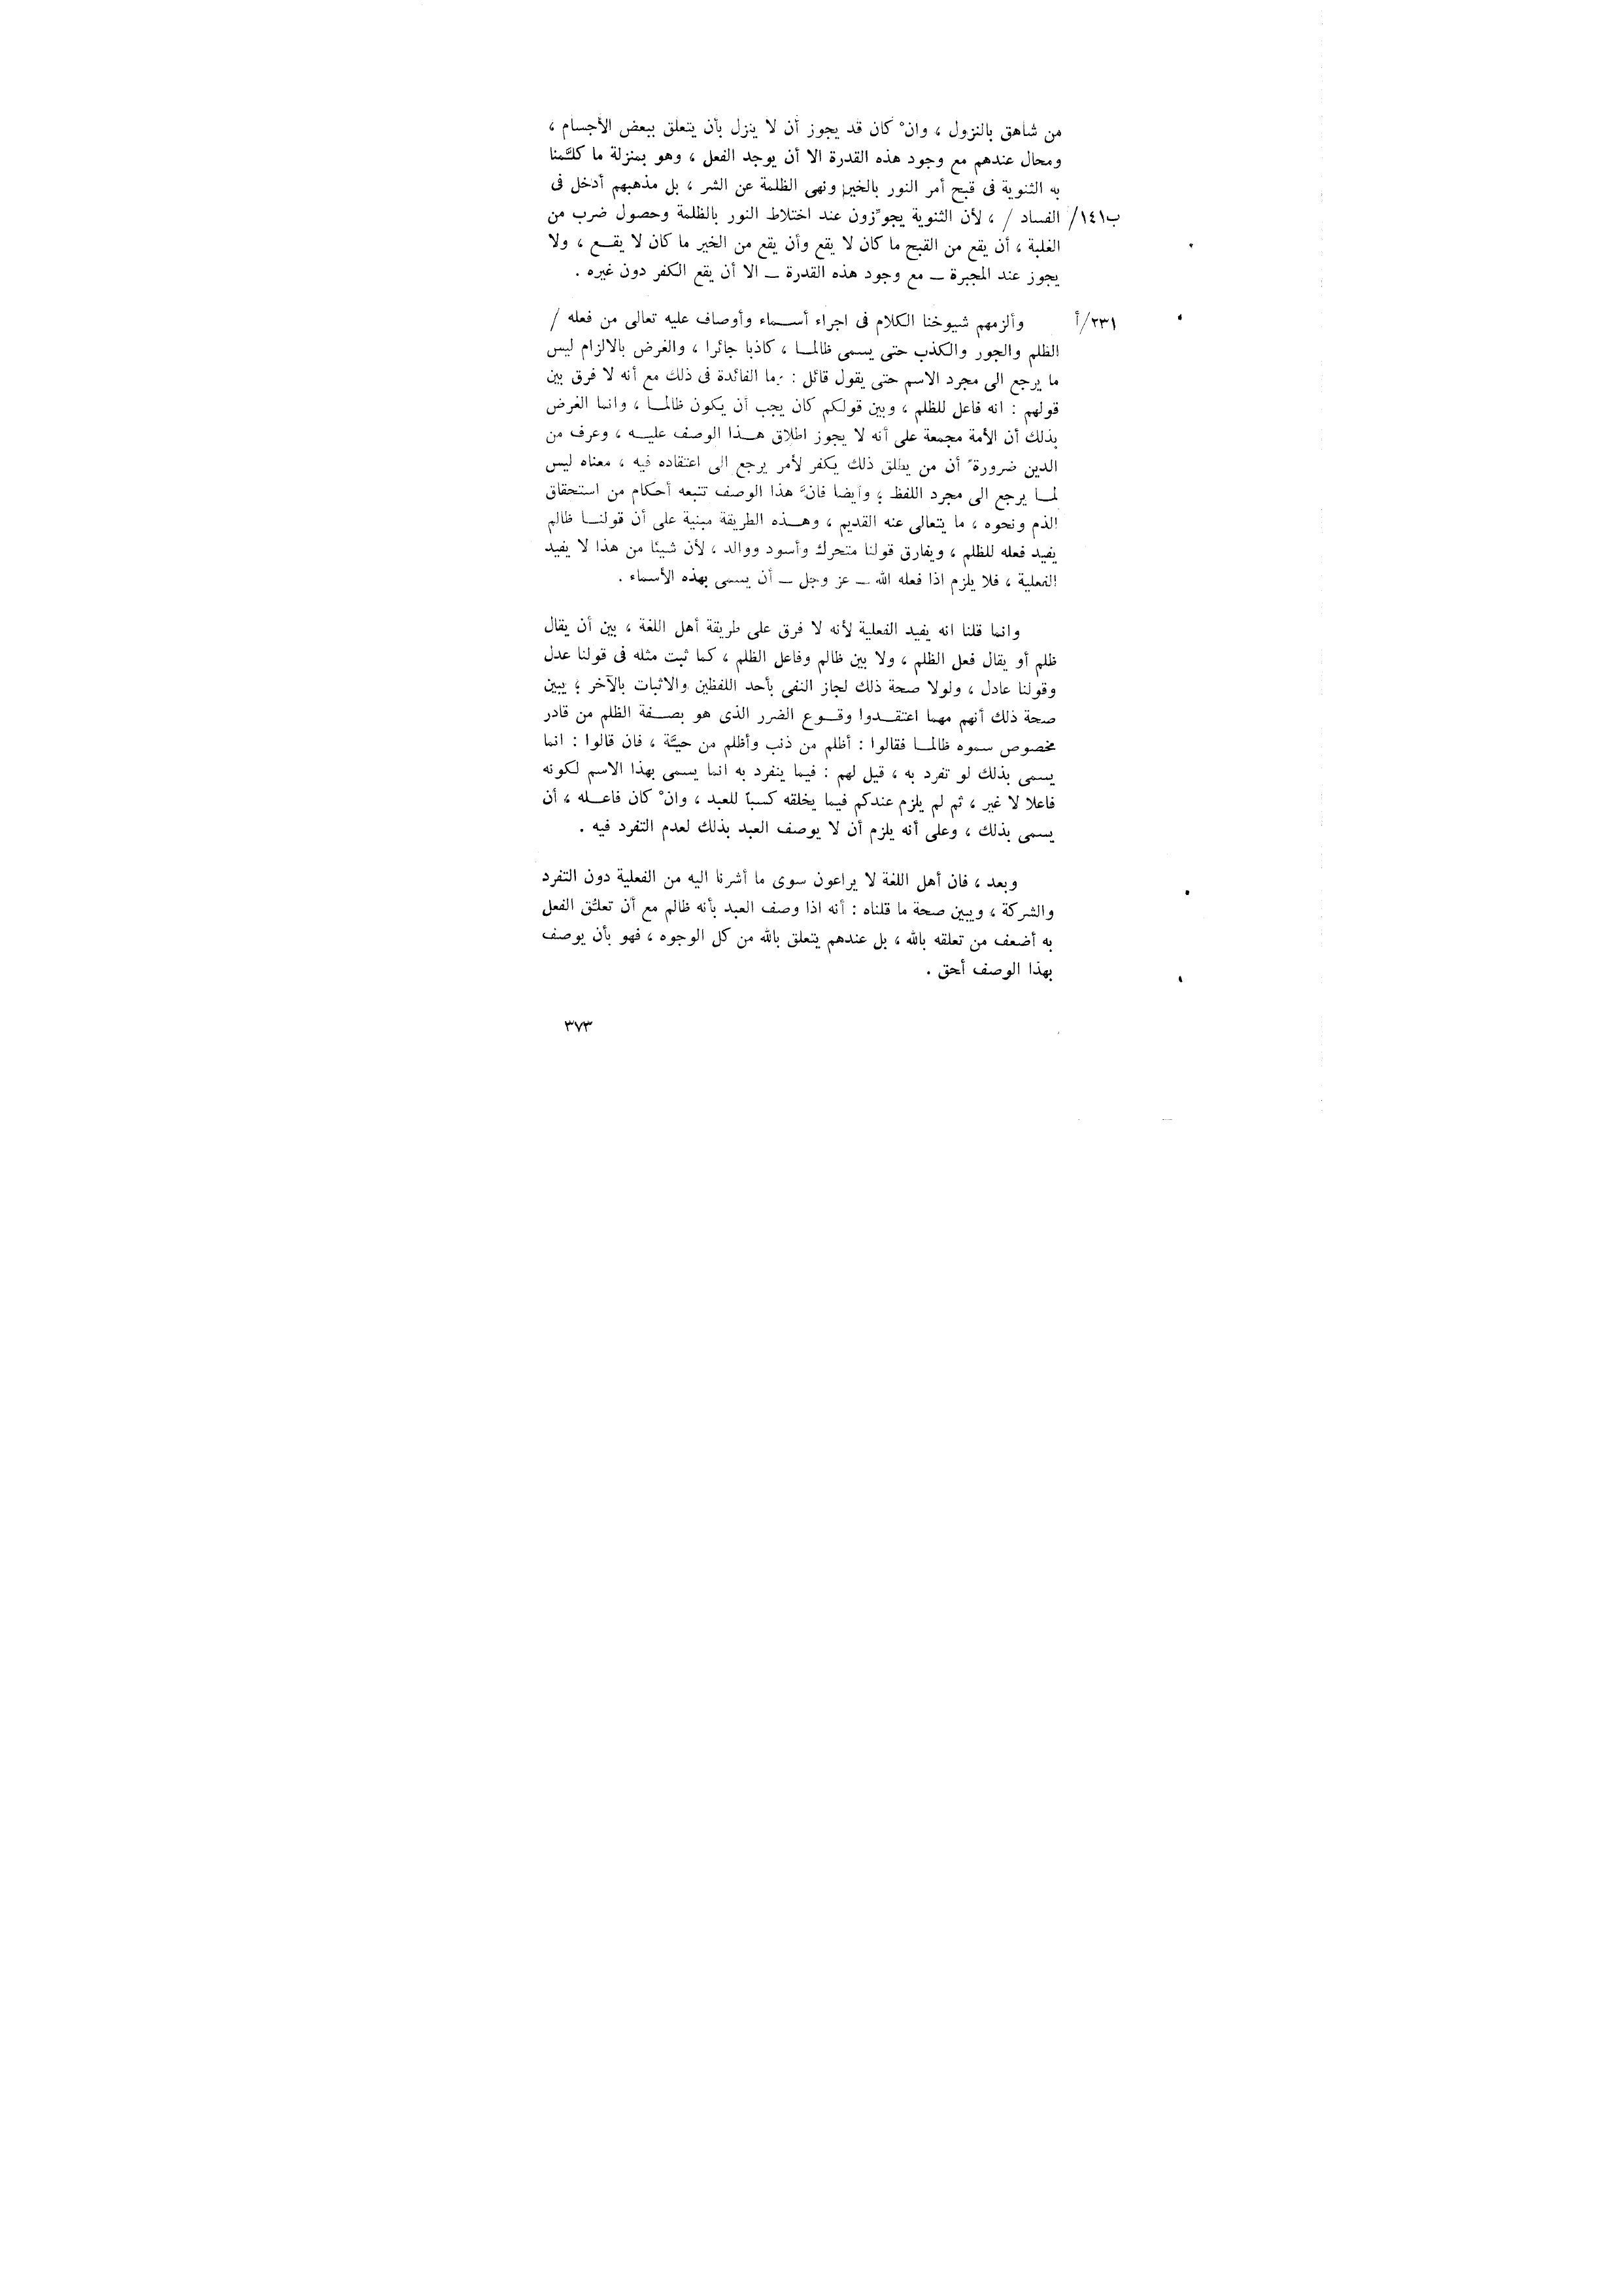 من شاهق بالنزول ، وانْ كان قد يجوز أن لا ينزل بأن يتعلق ببعض الأجسام ،
ومحال عندهم مع وجود هذه القدرة الا أن يوجد الفعل ، وهو بمنزلة ما كلَّمنا
به الثنوية فى قبح أمر النور بالخير ونهى الظلمة عن الشر ، بل مذهبهم أدخل فى
ب١٤١/ الفساد / ، لأن الثنوية يجوِّزون عند اختلاط النور بالظلمة وحصول ضرب من
الغلبة ، أن يقع من القبح ما كان لا يقع وأن يقع من الخير ما كان لا يقـع ، ولا
يجوز عند المجبرة ــ مع وجود هذه القدرة ــ الا أن يقع الكفر دون غيره .
٢٣١/أ وألزمهم شيوخنا الكلام فى اجراء أسـماء وأوصاف عليه تعالى من فعله /
الظلم والجور والكذب حتى يسمى ظالمـا ، كاذبا جائرا ، والغرض بالالزام ليس
ما يرجع الى مجرد الاسم حتى يقول قائل : ما الفائدة فى ذلك مع أنه لا فرق بين
قولهم : انه فاعل للظلم ، وبين قولكم كان يجب أن يكون ظالمـا ، وانما الغرض
بذلك أن الأمة مجمعة على أنه لا يجوز اطلاق هـذا الوصف عليـه ، وعرف من
الدين ضرورةً أن من يطلق ذلك يكفر لأمر يرجع الى اعتقاده فيه ، معناه ليس
لمـا يرجع الى مجرد اللفظ ؛ وأيضا فانَّ هذا الوصف تتبعه أحكام من استحقاق
الذم ونحوه ، ما يتعالى عنه القديم ، وهـذه الطريقة مبنية على أن قولنـا ظالم
يفيد فعله للظلم ، ويفارق قولنا متحرك وأسود ووالد ، لأن شيئا من هذا لا يفيد
الفعلية ، فلا يلزم اذا فعله الله ــ عز وجل ــ أن يسمى بهذه الأسماء .
وانما قلنا انه يفيد الفعلية لأنه لا فرق على طريقة أهل اللغة ، بين أن يقال
ظلم أو يقال فعل الظلم ، ولا بين ظالم وفاعل الظلم ، كما ثبت مثله فى قولنا عدل
وقولنا عادل ، ولولا صحة ذلك لجاز النفى بأحد اللفظين والاثبات بالآخر ؛ يبين
صحة ذلك أنهم مهما اعتقـدوا وقـوع الضرر الذى هو بصـفة الظلم من قادر
مخصوص سموه ظالمـا فقالوا : أظلم من ذئب وأظلم من حيَّة ، فان قالوا : انما
يسمى بذلك لو تفرد به ، قيل لهم : فيما ينفرد به انما يسمى بهذا الاسم لكونه
فاعلا لا غير ، ثم لم يلزم عندكم فيما يخلقه كسباً للعبد ، وانْ كان فاعـله ، أن
يسمى بذلك ، وعلى أنه يلزم أن لا يوصف العبد بذلك لعدم التفرد فيه .
وبعد ، فان أهل اللغة لا يراعون سوى ما أشرنا اليه من الفعلية دون التفرد
والشركة ، ويبين صحة ما قلناه : أنه اذا وصف العبد بأنه ظالم مع أن تعلُّق الفعل
به أضعف من تعلقه بالله ، بل عندهم يتعلق بالله من كل الوجوه ، فهو بأن يوصف
بهذا الوصف أحق .
٣٧٣